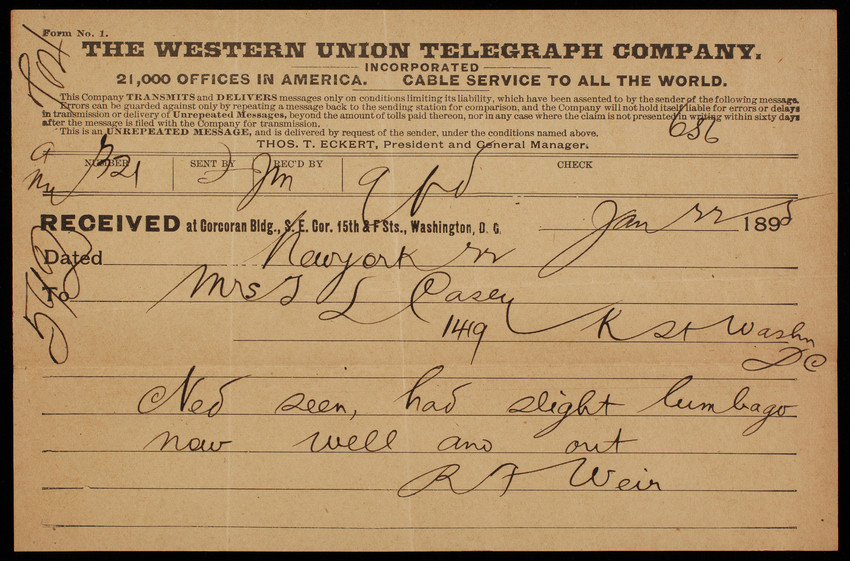 Form No. 1.
THE WESTERN UNION TELEGRAPH COMPANY.
INCORPORATED
21,000 OFFICES IN AMERICA. CABLE SERVICE TO ALL THE WORLD.
This Company TRANSMITS and DELIVERS messages only on conditions limiting its liability, which have been assented to by the sender of the following message.
Errors can be guarded against only by repeating a message back to the sending station for comparison, and the Company will not hold itself liable for errors or delays
in transmission or delivery of Unrepeated Messages, beyond the amount of tolls paid thereon, nor in any case where the claim is not presented in writing within sixty days
after the message is filed with the Company for transmission.
This is an UNREPEATED MESSAGE, and is delivered by request of the sender, under the conditions named above.
686
THOS. T. ECKERT, President and General Manager.
NUMBER SENT BY REC'D BY CHECK
721 Jm 9 pd
RECEIVED at Corcoran Bldg., S. E. Cor. 15th & F Sts., Washington, D. C. Jan 22 1895
Dated New york 22
To Mrs T L Casey
1419 K St Washn
DC
Ned seen, had slight lumbago
now well and out
R F Weir